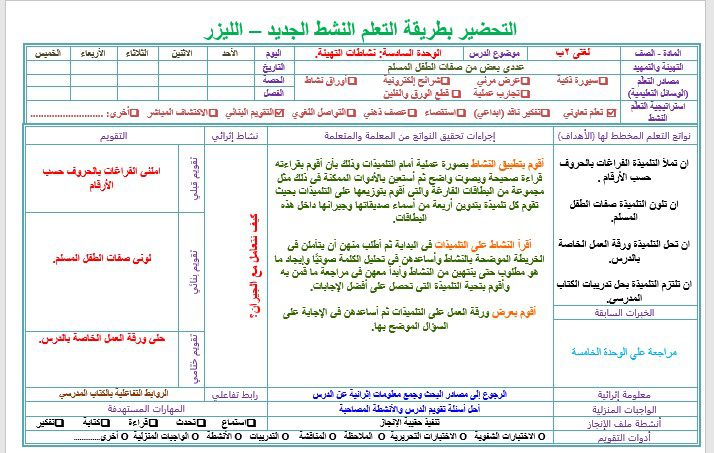 التحضير بطريقة التعلم النشط الجديد – الليزر
المادة - الصف
لغتي ٢ب
موضوع الدرس
الوحدة السادسة: نشاطات التهيئة.
اليوم
الأحد
الاثنين
الثلاثاء
الأربعاء
الخميس
التهيئة والتمهيد
عددي بعض من صفات الطفل المسلم
التاريخ
مصادر التعلم
(الوسائل التعليمية)
سبورة ذكية
عرض مرئي
شرائح إلكترونية
أوراق نشاط
تجارب عملية
قطع الورق والفلين
الحصة
الفصل
استراتيجية التعلم
النشط
تعلم تعاوني
تفكير ناقد (ابداعي)
استقصاء
عصف ذهني
التواصل اللغوي
التقويم البنائي
الاكتشاف المباشر
أخرى: ......................
نواتج التعلم المخطط لها (الأهداف)
إجراءات تحقيق النواتج من المعلمة والمتعلمة
نشاط إثرائي
التقويم
ان تملأ التلميذة الفراغات بالحروف
حسب الأرقام .
ان تلون التلميذة صفات الطفل
المسلم.
ان تحل التلميذة ورقة العمل الخاصة
بالدرس.
ان تلتزم التلميذة بحل تدريبات الكتاب
المدرسي.
الخبرات السابقة
مراجعة على الوحدة الخامسة
أقوم بتطبيق النشاط بصورة عملية أمام التلميذات وذلك بأن أقوم بقراءته
قراءة صحيحة وبصوت واضح ثم أستعين بالأدوات الممكنة في ذلك مثل
مجموعة من البطاقات الفارغة والتي أقوم بتوزيعها على التلميذات بحيث
تقوم كل تلميذة بتدوين أربعة من أسماء صديقاتها وجيرانها داخل هذه
البطاقات.
أقرأ النشاط على التلميذات في البداية ثم أطلب منهن أن يتأملن في
الخريطة الموضحة بالنشاط وأساعدهن في تحليل الكلمة صوتيًا وإيجاد ما
هو مطلوب حتى ينتهين من النشاط وأبدأ معهن في مراجعة ما قمن به
وأقوم بتحية التلميذة التي تحصل على أفضل الإجابات.
أقوم بعرض ورقة العمل على التلميذات ثم أساعدهن في الإجابة على
السؤال الموضح بها.
كيف نتعامل مع الجيران؟
تقويم قبلي
املئي الفراغات بالحروف حسب
الأرقام
تقويم بنائي
لوني صفات الطفل المسلم.
تقويم ختامي
حلي ورقة العمل الخاصة بالدرس.
معلومة إثرائية
الرجوع إلى مصادر البحث وجمع معلومات إثرائية عن الدرس
رابط تفاعلي
الروابط التفاعلية بالكتاب المدرسي
الواجبات المنزلية
أحل أسئلة تقويم الدرس والأنشطة المصاحبة
المهارات المستهدفة
أنشطة ملف الإنجاز
تنفيذ حقيبة الإنجاز
استماع
تحدث
قراءة
كتابة
تفكير
أدوات التقويم
O الاختبارات الشفوية O الاختبارات التحريرية O الملاحظة O المناقشة O التدريبات O الأنشطة O الواجبات المنزلية O أخرى............